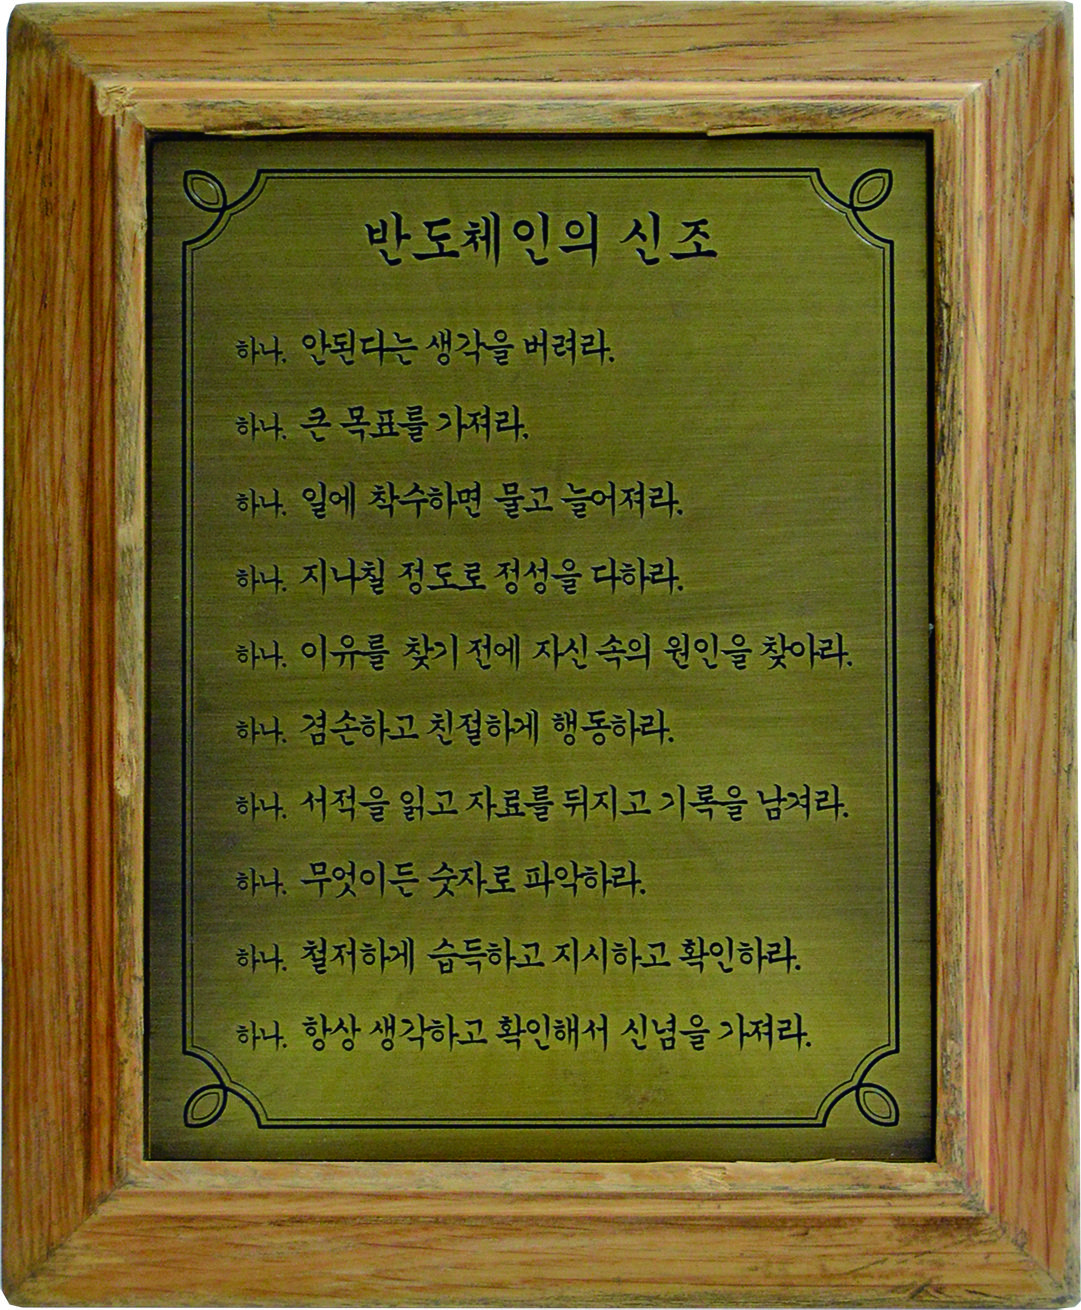 반도체인의 신조
하나. 안된다는 생각을 버려라.
하나. 큰 목표를 가져라.
하나. 일에 착수하면 물고 늘어져라.
하나. 지나칠 정도로 정성을 다하라.
하나. 이유를 찾기 전에 자신 속의 원인을 찾아라.
하나. 겸손하고 친절하게 행동하라.
하나. 서적을 읽고 자료를 뒤지고 기록을 남겨라.
하나. 무엇이든 숫자로 파악하라.
하나. 철저하게 습득하고 지시하고 확인하라.
하나. 항상 생각하고 확인해서 신념을 가져라.